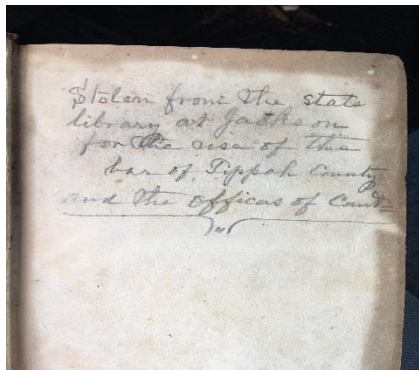 Stolen from the state
library at Jackson
for the use of the
bar of Tippah County
and the officers of Court